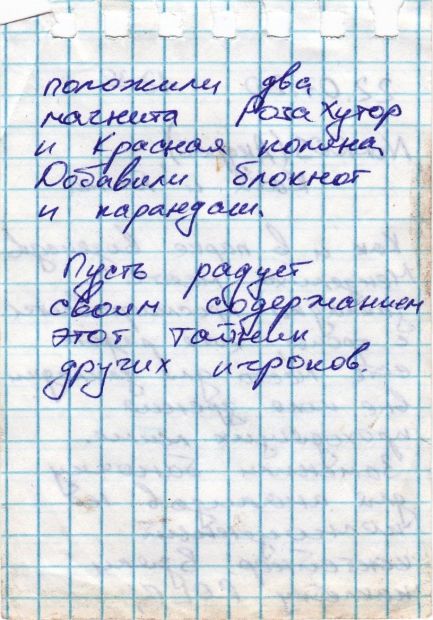 положили два
магнита Роза Хутор
и Красная поляна.
Добавили блокнот
и карандаш.
Пусть радует
своим содержанием
этот тайник
других игроков.